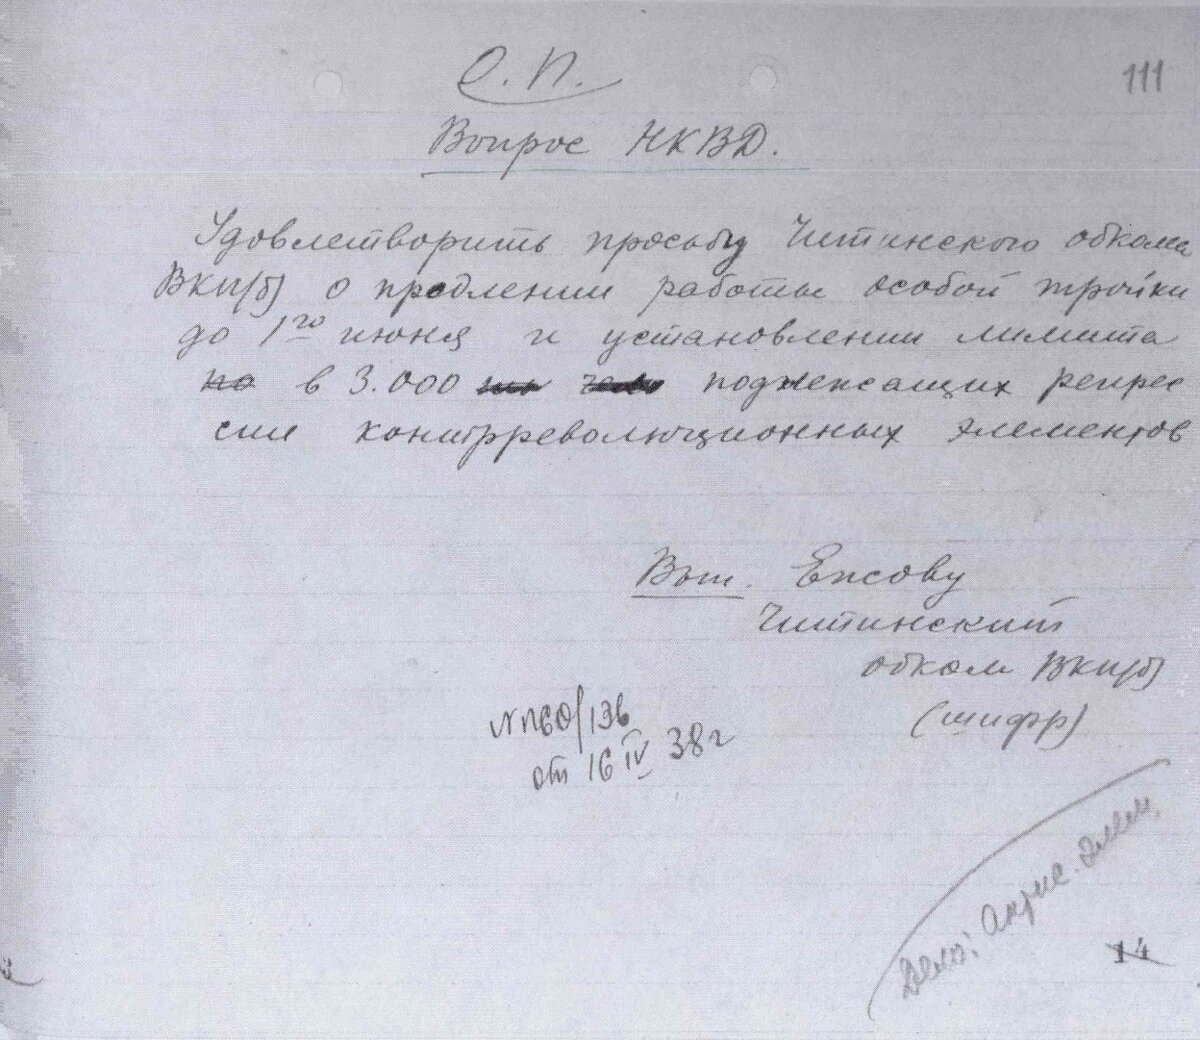 О.П.
111
Вопрос НКВД.
Удовлетворить просьбу Читинского обкома
ВКП(б) о продлении работы особой тройки
до 1го июня и установлении лимита
по в 3.000 подлежащих репрес
сии контрреволюционных элементов
Вып. Ежову
Читинский
обком ВКП(б)
(шифр)
№П60/136
от 16 IV 38 г
Дело: Антис. элем.
14